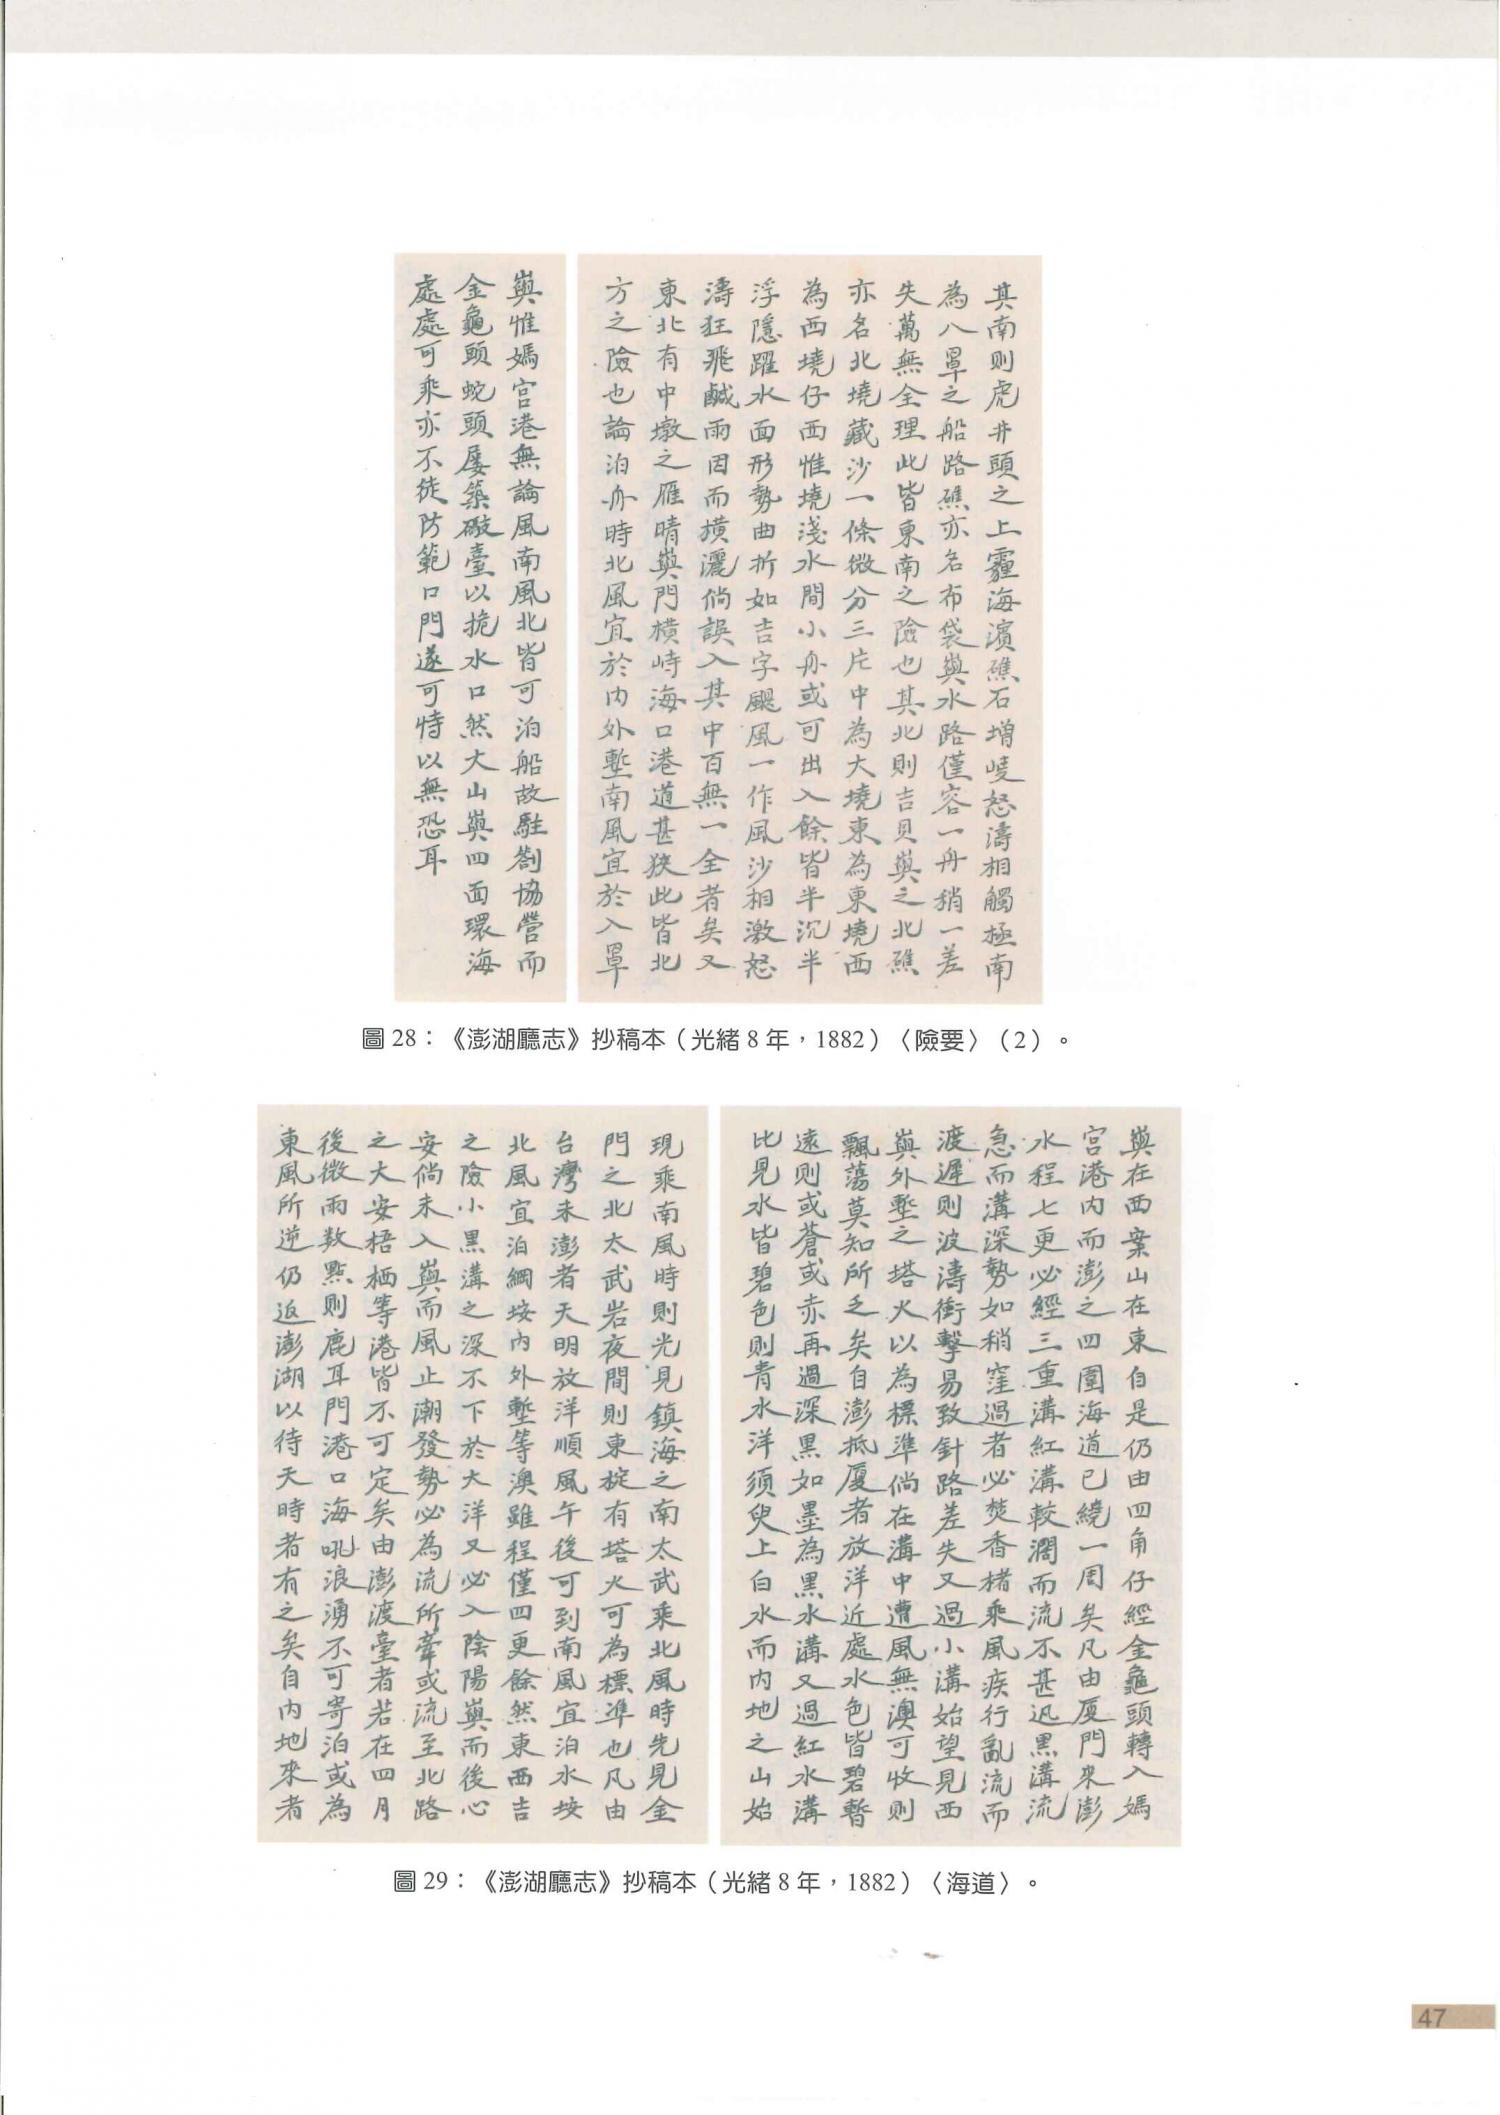 其南則虎井頭之上霾海濱礁石增崚怒濤相觸極南
為八罩之船路礁亦名布袋嶼水路僅容一舟稍一差
失萬無全理此皆東南之險也其北則吉貝嶼之北礁
亦名北墝藏沙一條微分三片中為大墝東為東墝西
為西墝仔西惟墝淺水間小舟或可出入餘皆半沉半
浮隱躍水面形勢曲折如吉字颶風一作風沙相激怒
濤狂飛鹹雨因而橫灑倘誤入其中百無一全者矣又
東北有中墩之雁晴嶼門橫峙海口港道甚狹此皆北
方之險也論泊舟時北風宜於內外塹南風宜於入罩
嶼惟媽宮港無論風南風北皆可泊船故駐劄協營而
金龜頭蛇頭屢築礮臺以扼水口然大山嶼四面環海
處處可乘亦不徒防範口門遂可恃以無恐耳
圖28：《澎湖廳志》抄稿本（光緒8年，1882）〈險要〉（2）。
嶼在西案山在東自是仍由四角仔經金龜頭轉入媽
宮港內而澎之四圍海道已繞一周矣凡由厦門來澎
水程七更必經三重溝紅溝較濶而流不甚迅黑溝流
急而溝深勢如稍窪過者必焚香楮乘風疾行亂流而
渡遲則波濤衝擊易致針路差失又過小溝始望見西
嶼外塹之塔火以為標準倘在溝中遭風無澳可收則
飄蕩莫知所之矣自澎抵厦者放洋近處水色皆碧暫
遠則或蒼或赤再過深黑如墨為黑水溝又過紅水溝
比見水皆碧色則青水洋須臾上白水而內地之山始
現乘南風時則光見鎮海之南太武乘北風時先見金
門之北太武岩夜間則東椗有塔火可為標準也凡由
台灣來澎者天明放洋順風午後可到南風宜泊水垵
北風宜泊網垵內外塹等澳雖程僅四更餘然東西吉
之險小黑溝之深不下於大洋又必入陰陽嶼而後心
安倘未入嶼而風止潮發勢必為流所牽或流至北路
之大安梧栖等港皆不可定矣由澎渡臺者若在四月
後微雨数點則鹿耳門港口海吼浪湧不可寄泊或為
東風所逆仍返澎湖以待天時者有之矣自內地來者
圖29：《澎湖廳志》抄稿本（光緒8年，1882）〈海道〉。
47